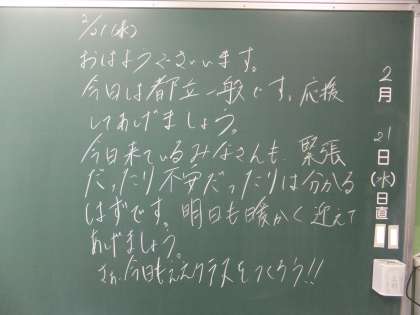 2/21(水)
おはようございます。
今日は都立一般です。応援
してあげましょう。
今日来ているみなさんも、緊張
だったり不安だったりは分かる
はずです。明日も暖かく迎えて
あげましょう。
さぁ、今日もええクラスをつくろう!!
2月
21日(水)
日直